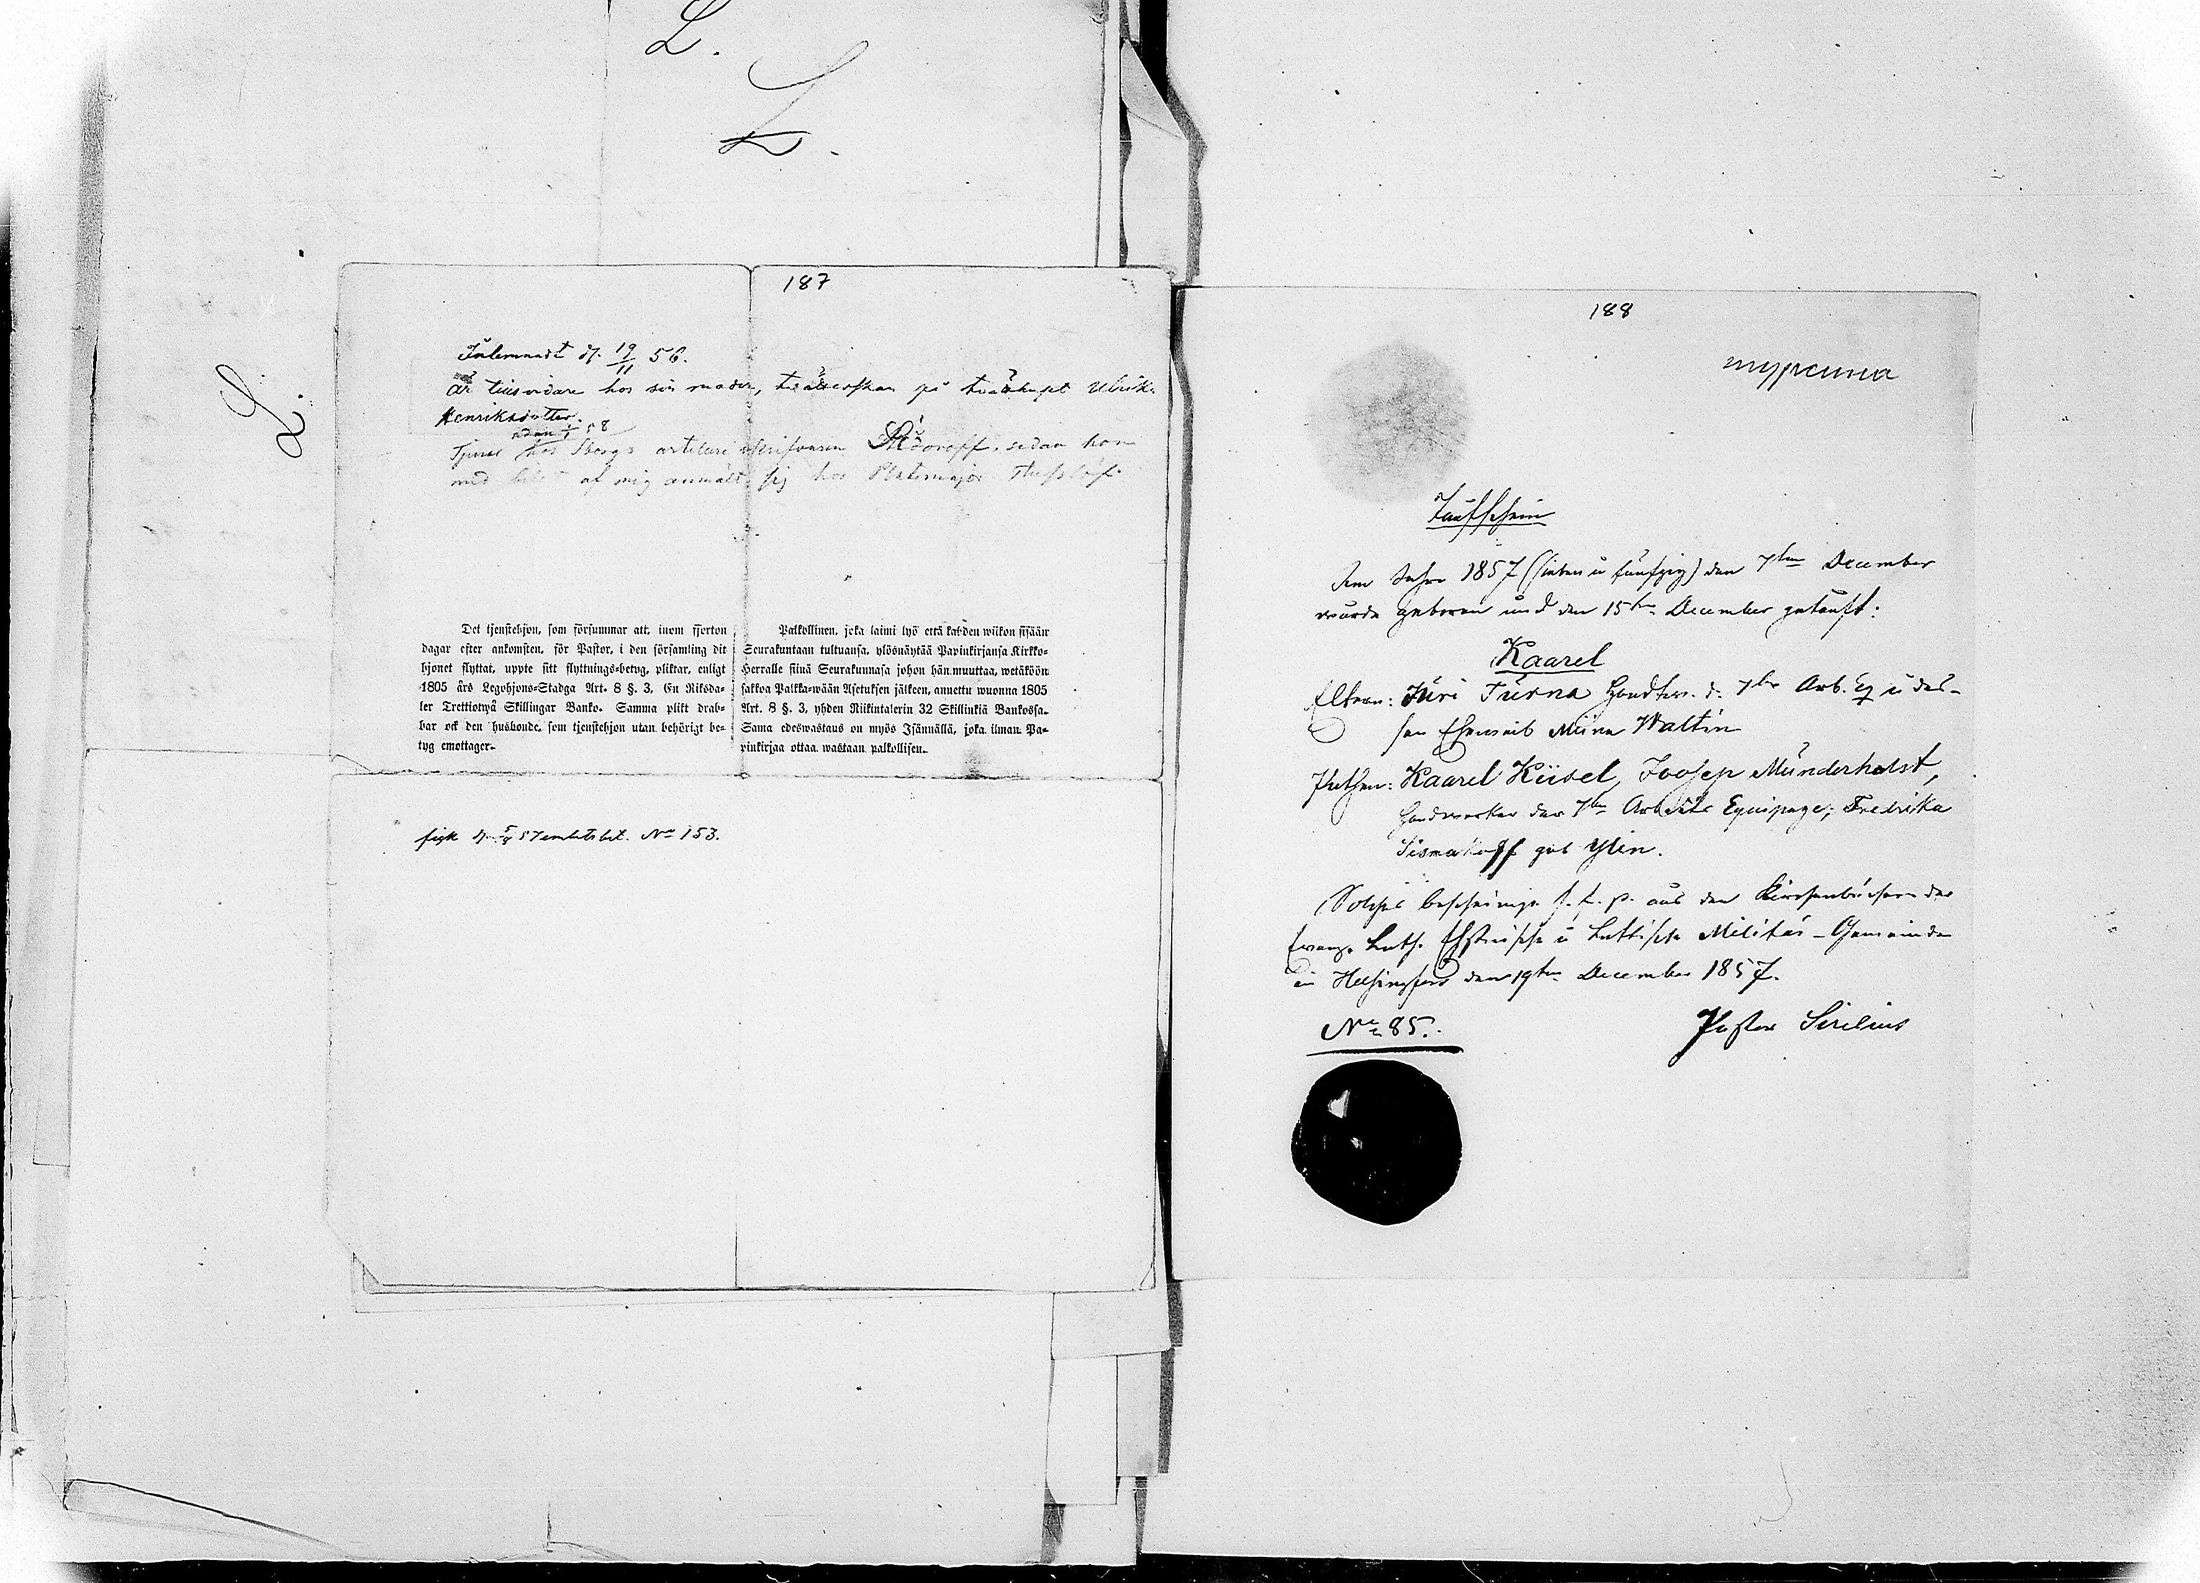 L.
L.
L.
187
Inlemnadt d. 19/11 56.
är tills vidare hos sin moder, tvätterskan på tvätthuset Ulrika
Henriksdotter.
sedan 1/1 58
Tjenar hos Sborgs artilleri Sidoroff, sedan hon
med af mig anmält sig hos Platsmajor
Det tjenstehjon, som försummar att, inom fjorton
dagar efter ankomsten, för Pastor, i den församling dit
hjonet flyttat, uppte sitt flyttnings-betyg, pliktar, enligt
1805 års Legohjons-Stadga Art. 8 §. 3, En Riksda-
ler Trettiotwå Skillingar Banko. Samma plikt drab-
bar ock den husbonde, som tjenstehjon utan behörigt be-
tyg emottager.
Palkollinen, joka laimi lyö että kahden wiikon sisään
Seurakuntaan tultuansa, ylösnäytää Papinkirjansa Kirkko-
Herralle siinä Seurakunnasa johon hän muuttaa, wetäköön
sakkoa Palkka-wään Asetuksen jälkeen, annettu wuonna 1805
Art. 8 §. 3, yhden Riikintalerin 32 Skillinkiä Bankossa.
Sama edeswastaus on myös Isännällä, joka ilman Pa-
pinkirjaa ottaa wastaan palkollisen.
fick d. 5/9 57 ambetsbet. No 153.
188
Taufschein
Im Jahre 1857 (sieben u fünfzig) den 7ten December
wurde geboren und den 15ten December getauft:
Kaarel
Eltern: Jüri Turna Handwr. d. 7ten Arb. Eq u des-
sen Eheweib Miina Waltin
Pathen: Kaarel Kiisel, Joosep Münderholst,
Handwerker der 7ten Arbeits Equipage; Fredrika
Sismakoff geb Ylin.
Solches bescheinige s. f. p. aus den Kirchenbüchern der
Evang. Luth. Ehstnische u Lettische Militär-Gemeinde
in Helsingfors den 19ten December 1857.
No 85.
Pastor Sirelius